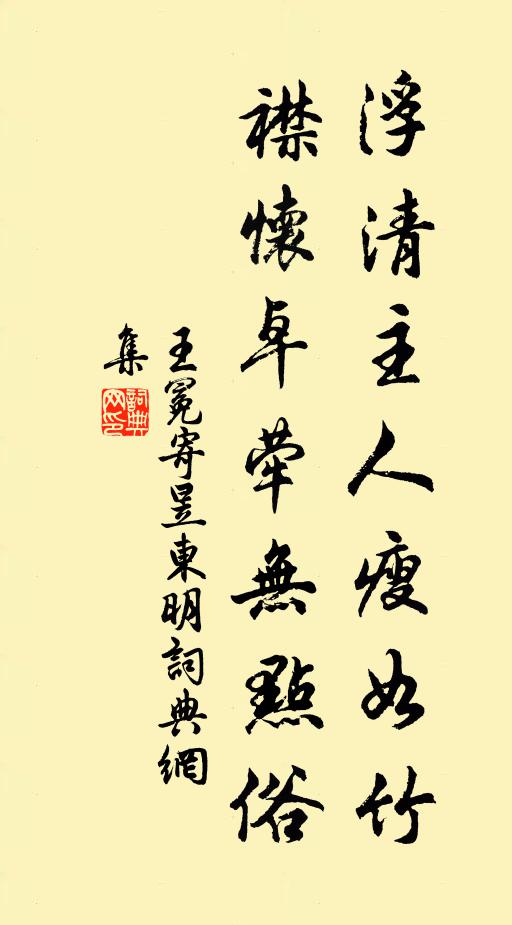 浮清主人瘦如竹
襟懷卓犖無點俗
王冕寄昱東明詞典網
集
詞典網印